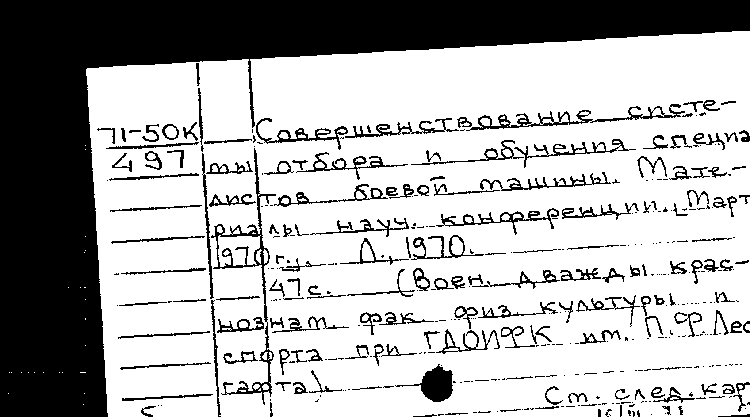 71-50К Совершенствование систе-
497 мы отбора и обучения специа
листов боевой машины. Мате-
риалы науч. конференции. Март
1970 г. Л., 1970.
47 с. (Воен. дважды крас-
нознам. фак. физ. культуры и
спорта при ГДОИФК им. П.Ф. Лес
гафта).
Ст. след. кар